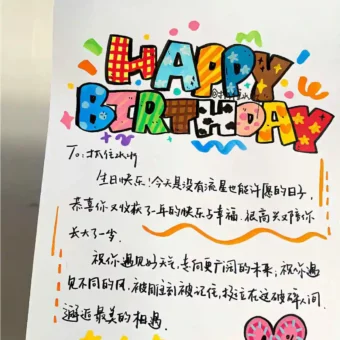 HAPPY
BIRTHDAY
To: 抓住
生日快乐！今天是没有流星也能许愿的日子，
恭喜你又收获了一年的快乐与幸福，很高兴又陪你
长大了一岁。
祝你遇见好天气，走向更广阔的未来，祝你遇
见不同的风，被雕刻被记住，接立在这破碎人间
邂逅最美的相遇。